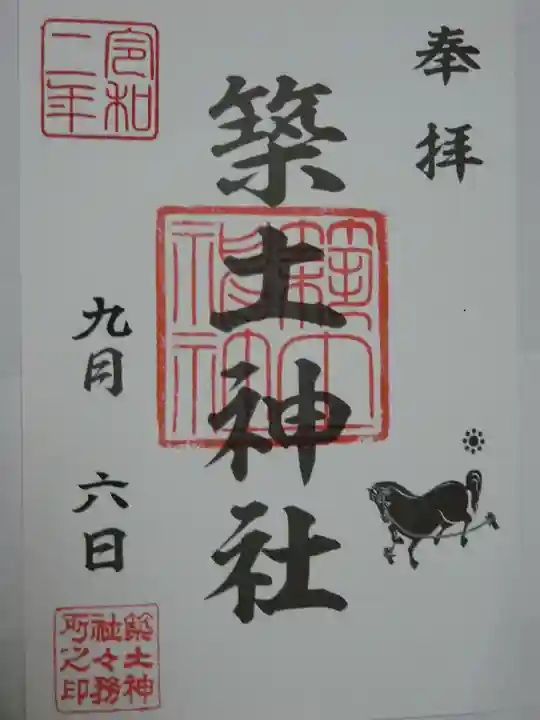 奉拝
築土神社
築土神社
令和
二年
九月
六日
築土神
社々務
所之印